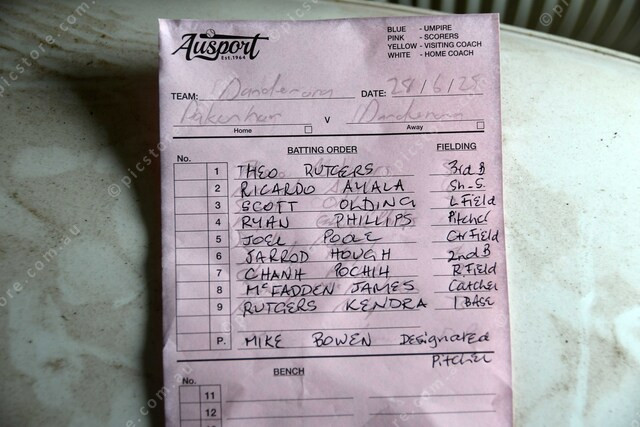 Ausport
Est.1964
BLUE - UMPIRE
PINK - SCORERS
YELLOW - VISITING COACH
WHITE - HOME COACH
TEAM: Dandenong DATE: 28/6/28
Pakenham V Dandenong
Home Away
BATTING ORDER FIELDING
No.
1 THEO RUTGERS 3rd B
2 RICARDO AYALA Sh-S.
3 SCOTT OLDING L Field
4 RYAN PHILLIPS Pitcher
5 JOEL POOLE Ctr Field
6 JARROD HOUGH 2nd B
7 CHANH POCHIH R.Field
8 McFADDEN JAMES Catcher
9 RUTGERS KENDRA 1 BASE
P. MIKE BOWEN Designated
Pitcher
BENCH
No.
11
12
© picstore.com.au